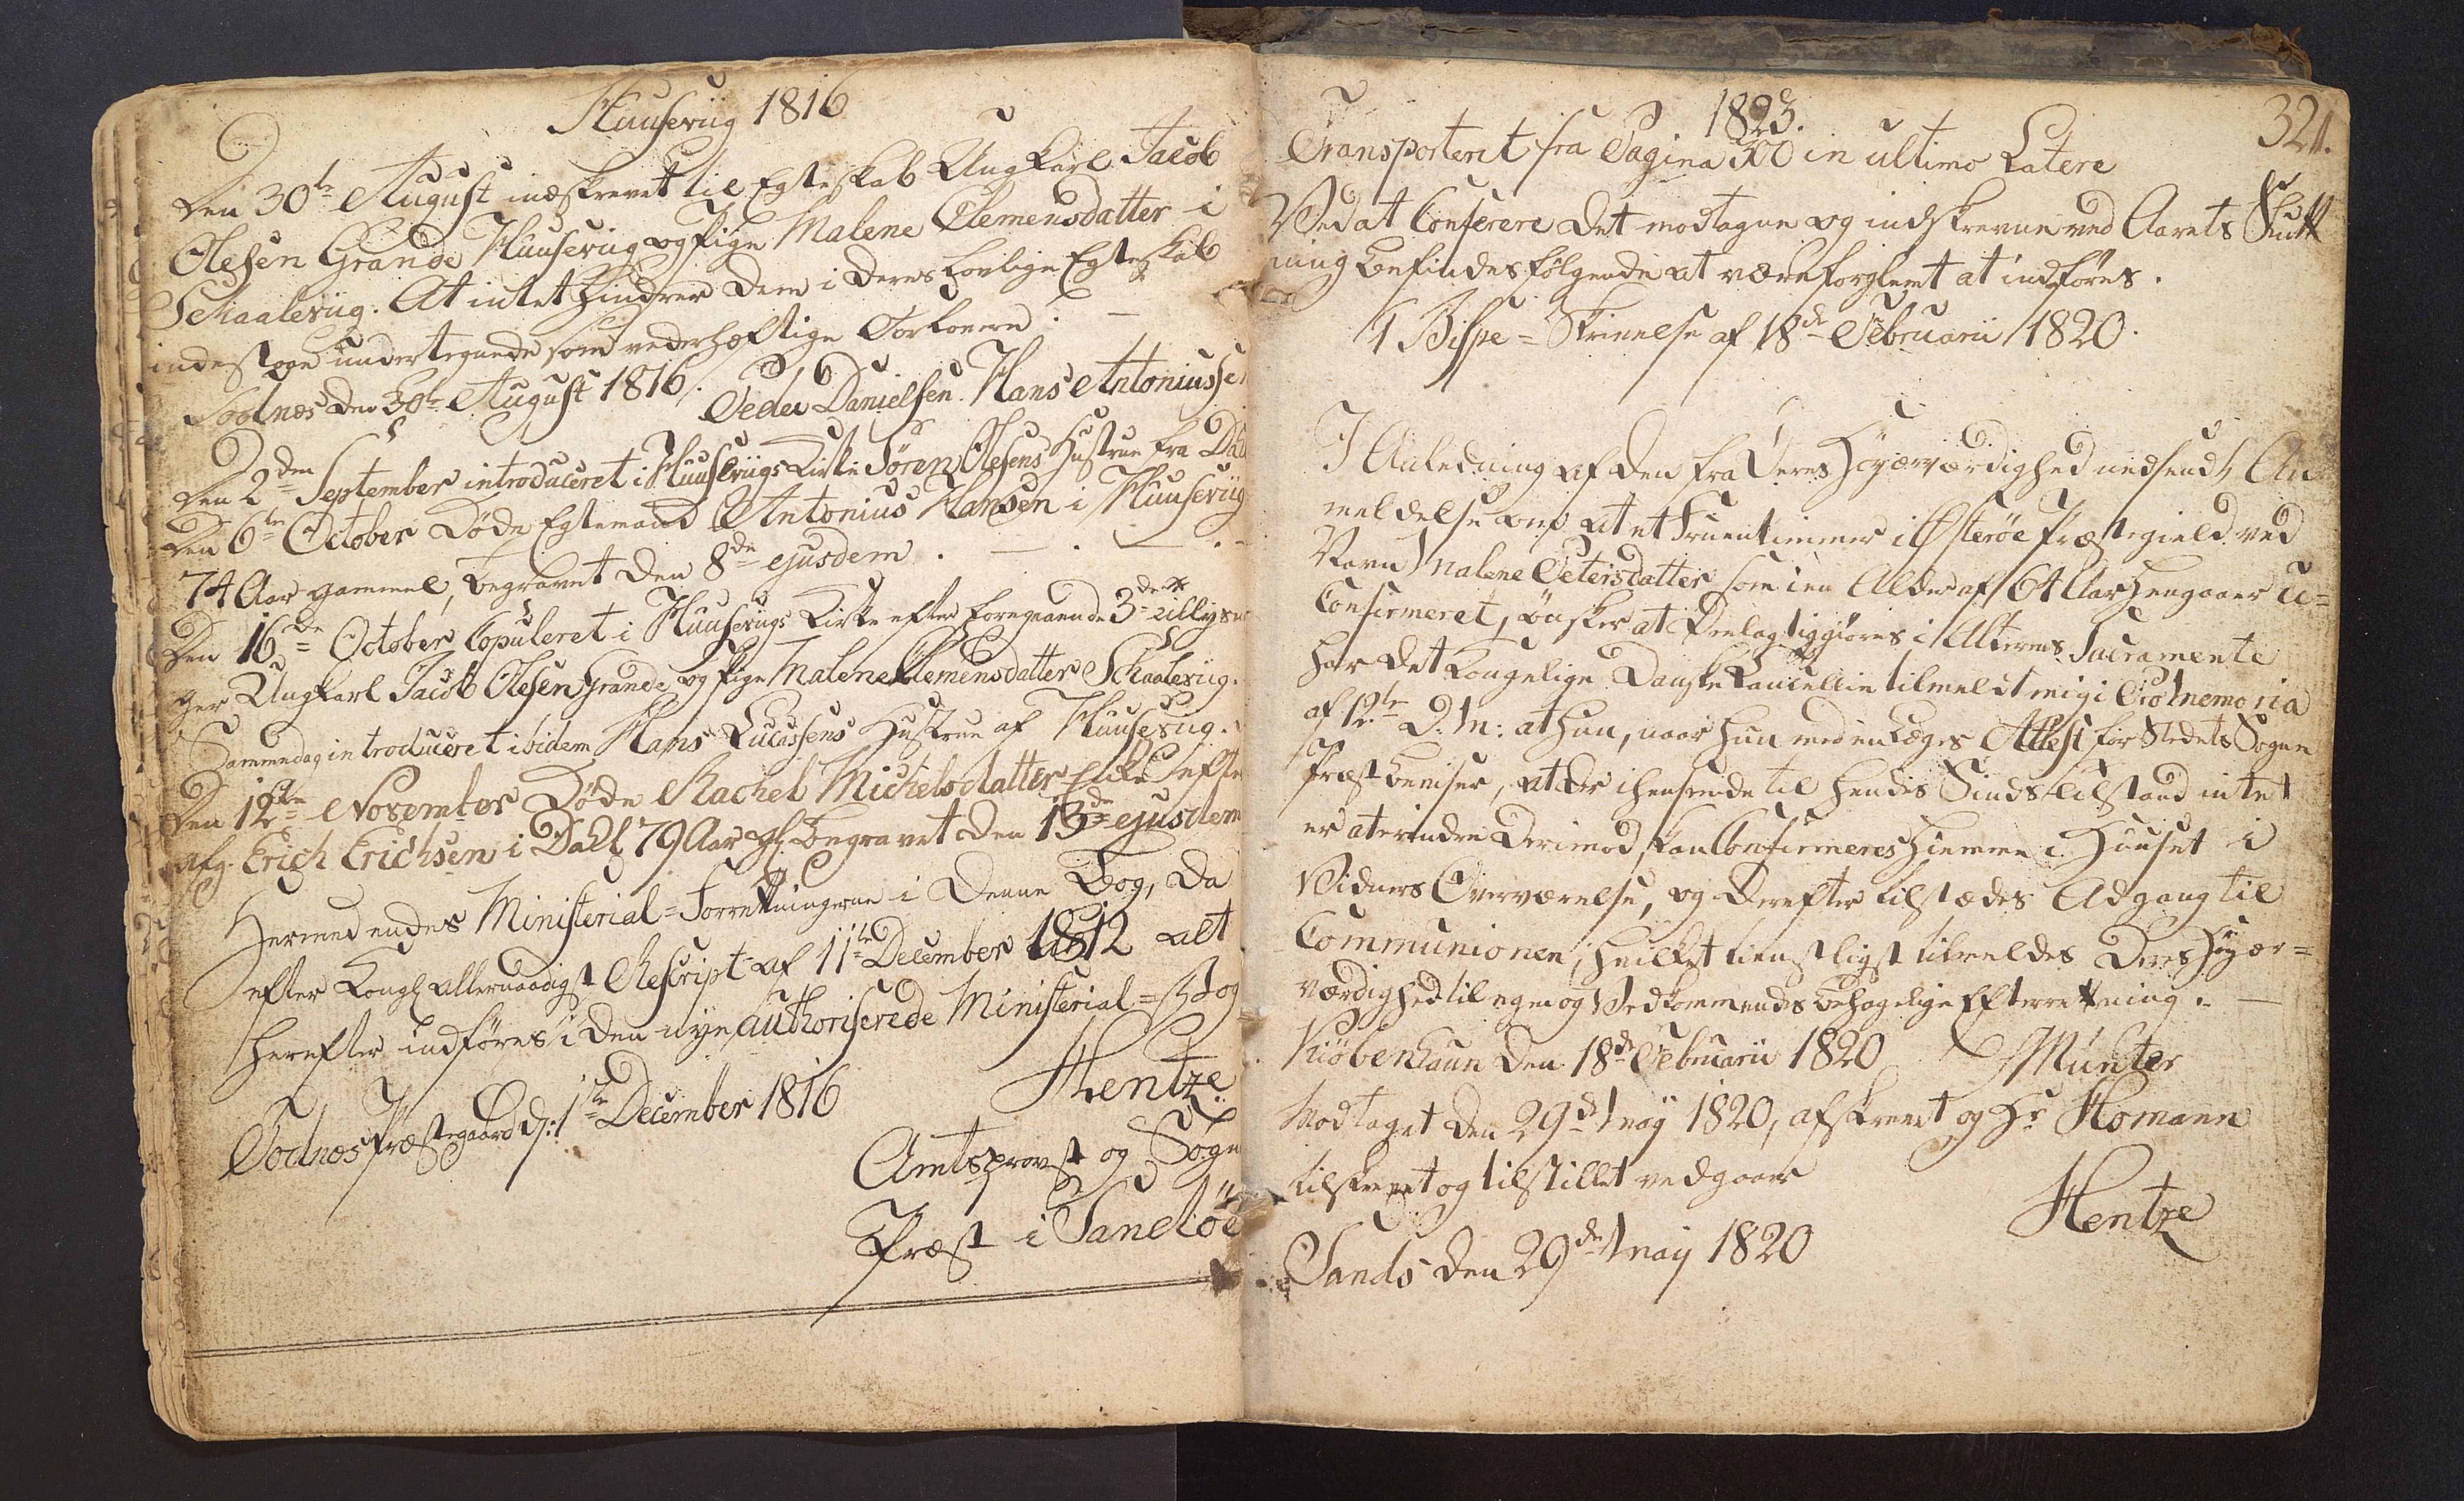 Huuseviig 1816
Den 30te August indskrevet til Egteskab Ungkarl Jacob
Olesen Grande Huuseviig og Pige Malene Clemensdatter i
Schaaleviig. At intet hindrer dem i deres lovlige Egteskab
indestaae undertegnede som vederhæftige Forlovere:
Todnæs den 30te August 1816. Peder Danielsen. Hans Antoniussen
Den 2den September introduceret i Huuseviigs Kirke Sören Olesens Hustrue fra Dahl
Den 6te October Döde Egtemand Antonius Hansen i Huuseviig
74 Aar gammel, begravet den 8de ejusdem.
Den 16de October Copuleret i Huuseviigs Kirke efter foregaaende 3de
ger Ungkarl Jacob Olesen Grande og Pige Malene Clemensdatter Schaaleviig.
Sammedag introduceret ibidem Hans Lucassens Hustrue af Huuseviig.
Den 12te November Döde Rachel Michelsdatter Enke efter
afg. Erich Erichsen i Dahl 79 Aar gl. begravet den 13de ejusdem
Hermed endes Ministerial=Forretningerne i denne Bog, da
efter Kongl allernaadigst Rescript af 11te December 1812 alt
herefter indföres i den nye authoriserede Ministerial=Bog
Todnæs Præstegaard d: 1te December 1816 Hentze
Amtsprovst og Sogne
Præst i Sandöe
1823. 321.
Transporteret fra Pagina 300 in ultimo Latere
Ved at Conferere det modtagne og indskrevne ved Aarets Slutt
ning befindes fölgende at være forglemt at indföres.
1 Bispe=Skrivelse af 18de Februarii 1820.
I Anledning af den fra Deres Höyærværdighed indsendte An
meldelse om at et Fruentimmer i Österöe Præstegield ved
Navn Malene Petersdatter som i en Alder af 64 Aar hengaaer u=
Confirmeret, önsker at deelagtiggiöres i Alterens Sacramente
har det Kongelige Danske Cancellie tilmeldt mig i Pro Memoria
af 12te D. M: at hun, naar hun med en Læges Attest for Stedets Sogne
Præst beviser, at der i henseende til hendes Sinds Tilstand intet
er at erindre derimod, kan Confirmeres hiemme i Huuset i
Vidners Overværelse, og derefter tilstædes Adgang til
Communionen; hvilket tienstligst tilmeldes Deres Höyær=
værdighed til egen og Vedkommendes behagelige Efterretning.
Kiöbenhaun den 18de Februarii 1820 Münter
Modtaget den 29de May 1820, afskrevet og Hr Homann
tilskrevet og tilstillet vedgaaer
Sands den 29de May 1820 Hentze